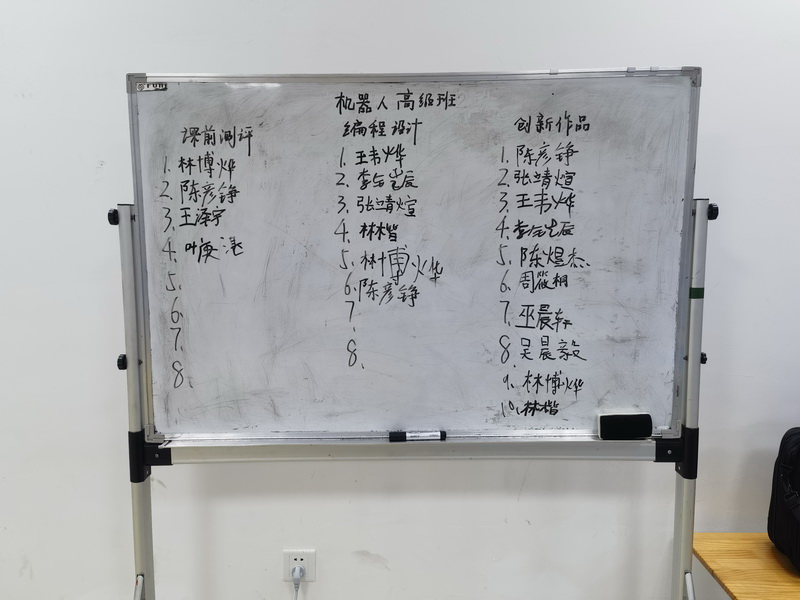 机器人高级班
课前测评
1. 林博烨
2. 陈彦铮
3. 王泽宇
4. 叶庚湛
5.
6.
7.
8.
编程设计
1. 王韦烨
2. 李岳岂辰
3. 张靖煊
4. 林楷
5. 林博烨
6. 陈彦铮
7.
8.
创新作品
1. 陈彦铮
2. 张靖煊
3. 王韦烨
4. 辰
5. 陈煜杰
6. 周筱桐
7. 巫晨
8. 吴晨毅
9. 林博烨
10. 林楷